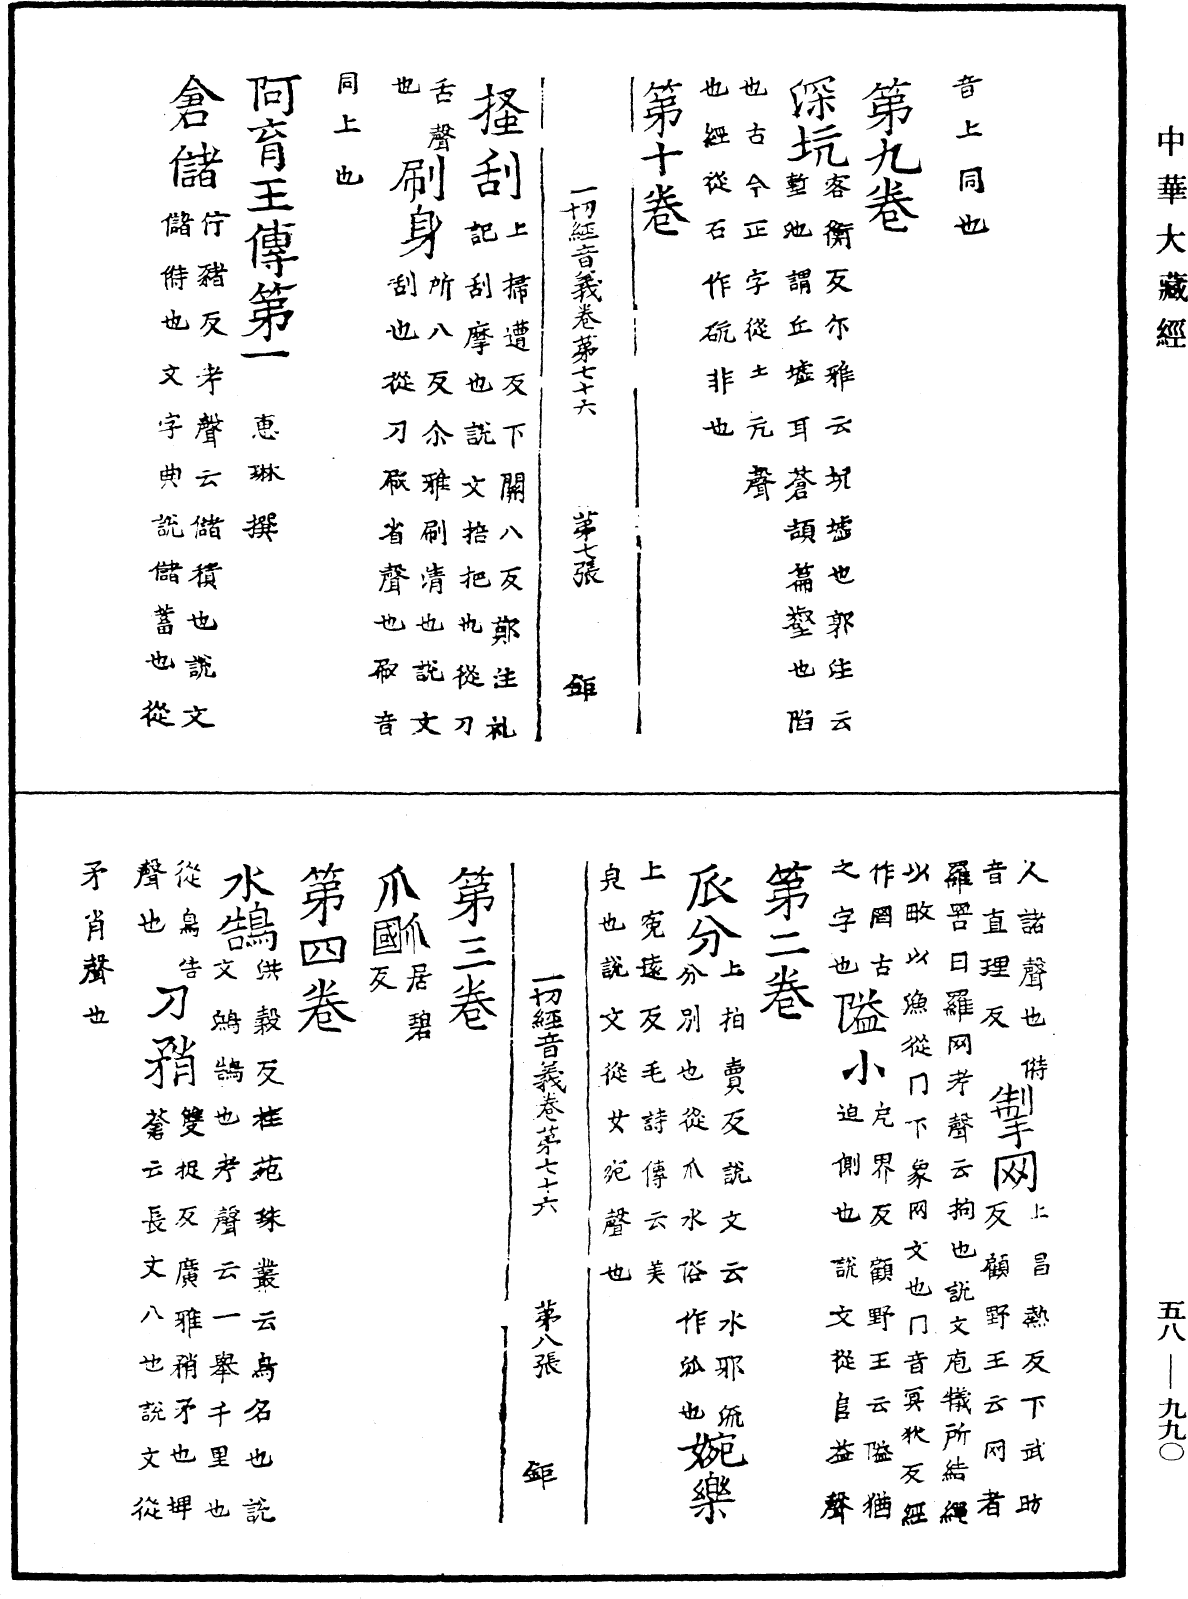 中華大藏經
音上同也
第九卷
深坑客衡反尒雅云坑墟也郭注云
塹池謂丘墟耳蒼頡篇壑也陷
也古今正字從土亢聲
也經從石作砊非也
第十卷
一切經音義卷第七十六 第七張 鉅
搔刮上掃遭反下關八反鄭注礼
記刮摩也說文掊把也從刀
舌聲也刷身所八反尒雅刷清也說文
刮也從刀㕞省聲也㕞音
同上也
阿育王傳第一 惠琳撰
倉儲佇豬反考聲云儲積也說文
儲偫也文字典說儲蓄也從
人諸聲也偫
音直理反掣网上昌熱反下武昉
反顧野王云网者
羅罟曰羅网考聲云拘也說文庖犧所結繩
以畋以漁從冂下象网文也冂音冥狄反經
作罔古
之字也隘小戹界反顧野王云隘猶
迫側也說文從𨸏益聲
第二卷
𠂢分上拍賣反說文云水邪流
分別也從爪水俗作泒也婉樂
上寃遠反毛詩傳云美
皃也說文從女宛聲也
一切經音義卷第七十六 第八張 鉅
第三卷
爪國爪居碧反
第四卷
水鵠洪穀反桂苑珠叢云鳥名也說
文鴻鵠也考聲云一舉千里也
從鳥告
聲也刀矟雙捉反廣雅矟矛也埤
蒼云長丈八也說文從
矛肖聲也
五八—九九〇